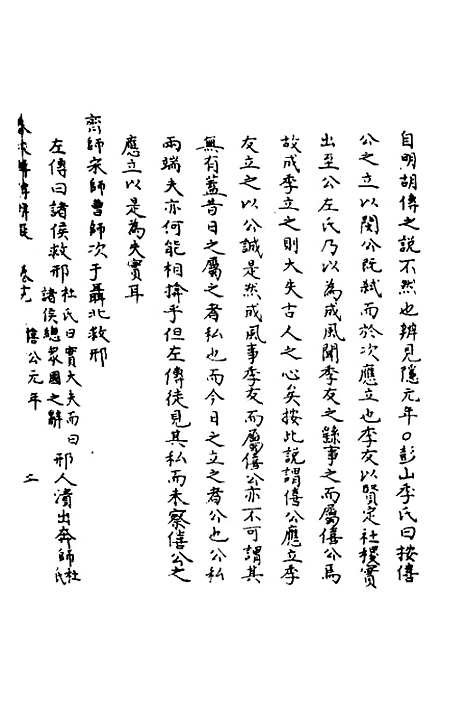 自明胡傳之說不然也辨見隱元年○彭山李氏曰按僖
公之立以閔公既弒而於次應立也季友以賢定社稷實
出至公左氏乃以為成風聞季友之繇事之而屬僖公焉
故成季立之則大失古人之心矣按此說謂僖公應立季
友立之以公誠是然成風事季友而屬僖公亦不可謂其
無有蓋昔日之屬之者私也而今日之立之者公也公私
兩端夫亦何能相揜乎但左傳徒見其私而未察僖公之
應立以是為失實耳
齊師宋師曹師次于聶北救邢
左傳曰諸侯救邢杜氏曰實大夫而曰諸侯總衆國之辭邢人潰出奔師杜氏
卷 僖公元年 二